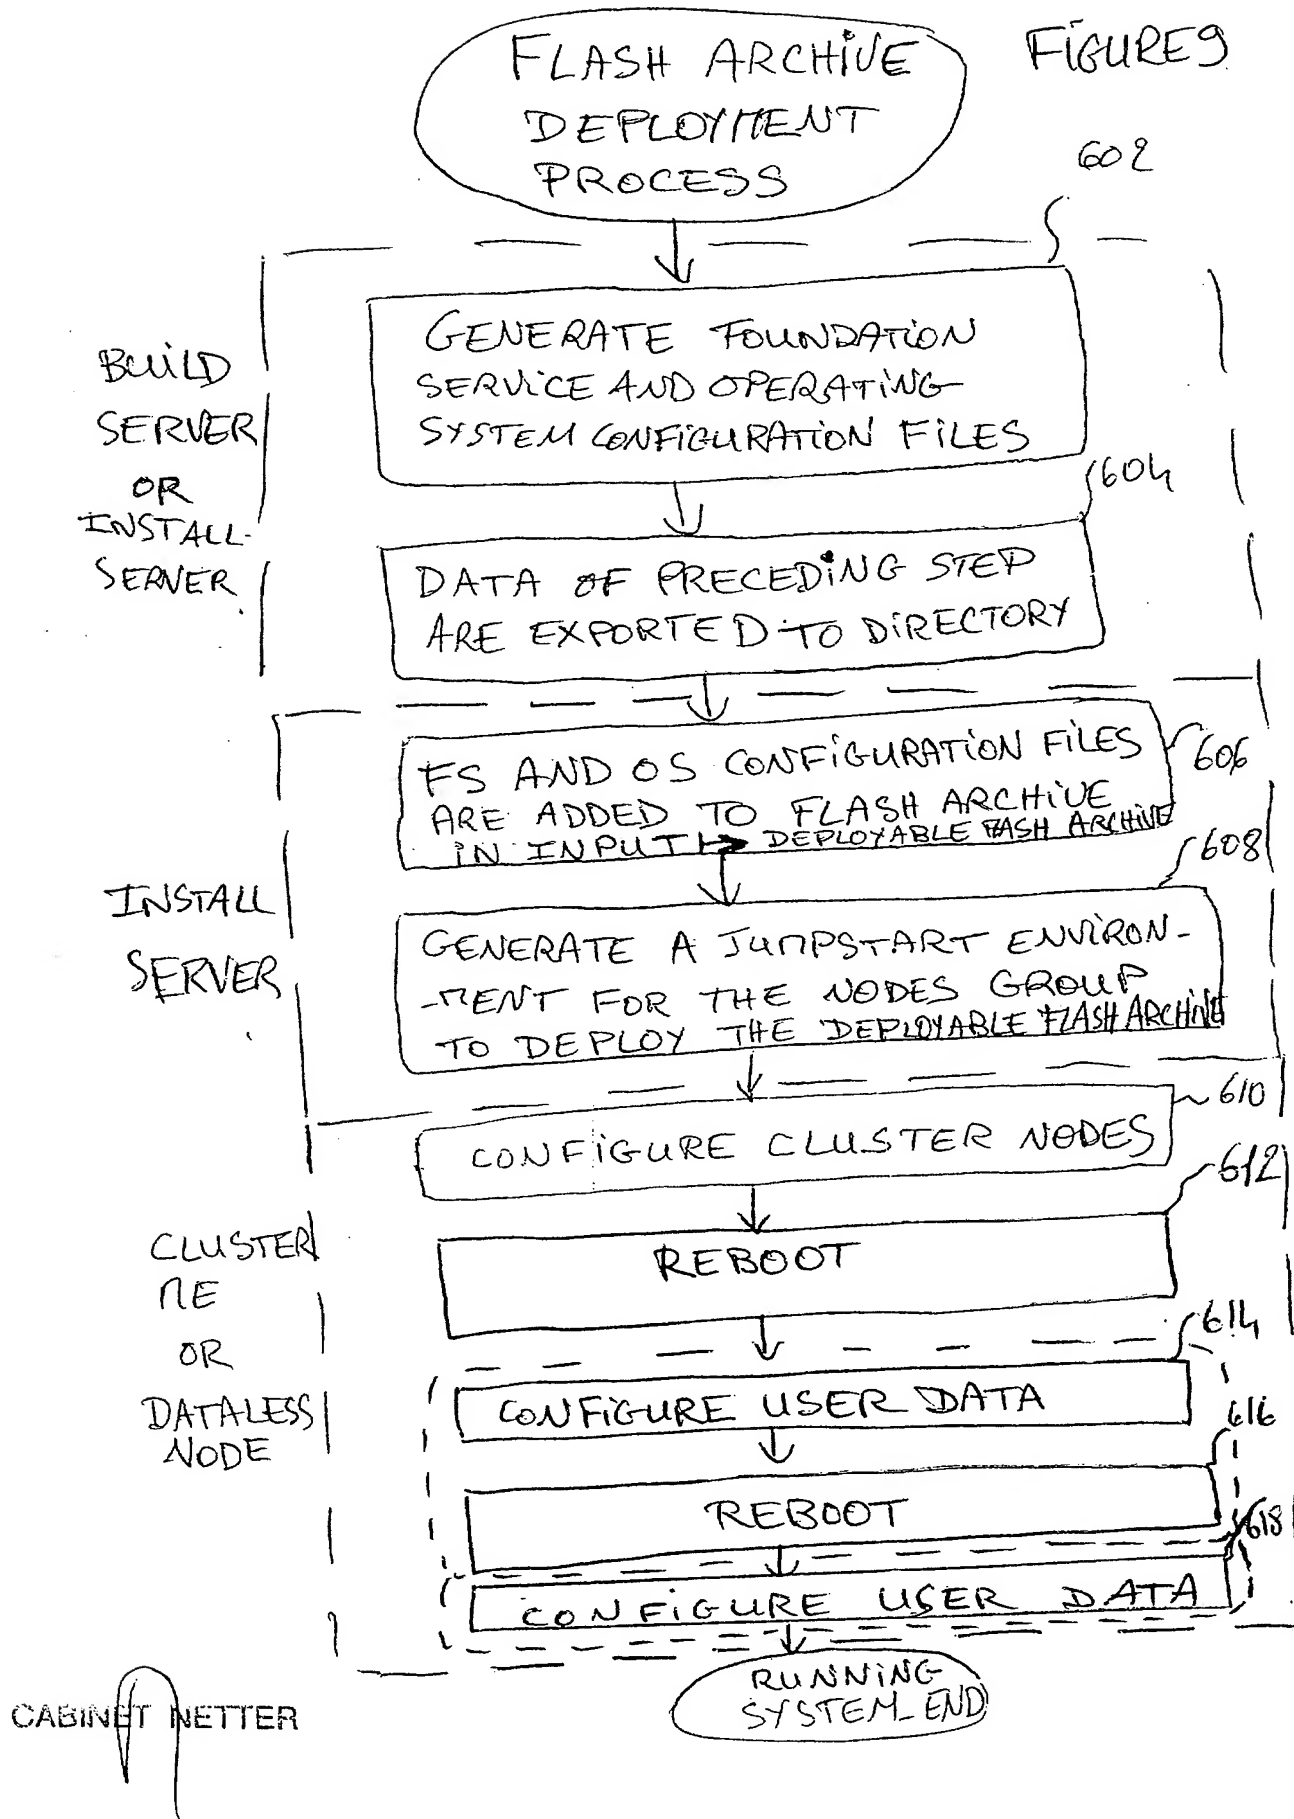 FLASH ARCHIVE
DEPLOYMENT
PROCESS
FIGURE 9
602
BUILD
SERVER
OR
INSTALL-
SERVER
GENERATE FOUNDATION
SERVICE AND OPERATING-
SYSTEM CONFIGURATION FILES
604
DATA OF PRECEDING STEP
ARE EXPORTED TO DIRECTORY
INSTALL
SERVER
FS AND OS CONFIGURATION FILES
ARE ADDED TO FLASH ARCHIVE
IN INPUT → DEPLOYABLE FLASH ARCHIVE
606
608
GENERATE A JUMPSTART ENVIRON-
-MENT FOR THE NODES GROUP
TO DEPLOY THE DEPLOYABLE FLASH ARCHIVE
610
CONFIGURE CLUSTER NODES
612
REBOOT
CLUSTER
ME
OR
DATALESS
NODE
614
CONFIGURE USER DATA
616
REBOOT
618
CONFIGURE USER DATA
RUNNING
SYSTEM_END
CABINET NETTER